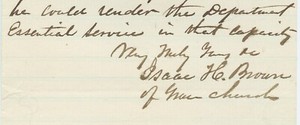 he could render the Department
Essential Service in that capacity
Very Truly Yours &c
Isaac H. Brown
of Grace Church